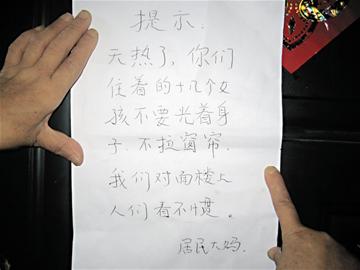 提示:
天热了,你们
住着的十几个女
孩不要光着身
子.不拉窗帘.
我们对面楼上
人们看不惯。
居民大妈.